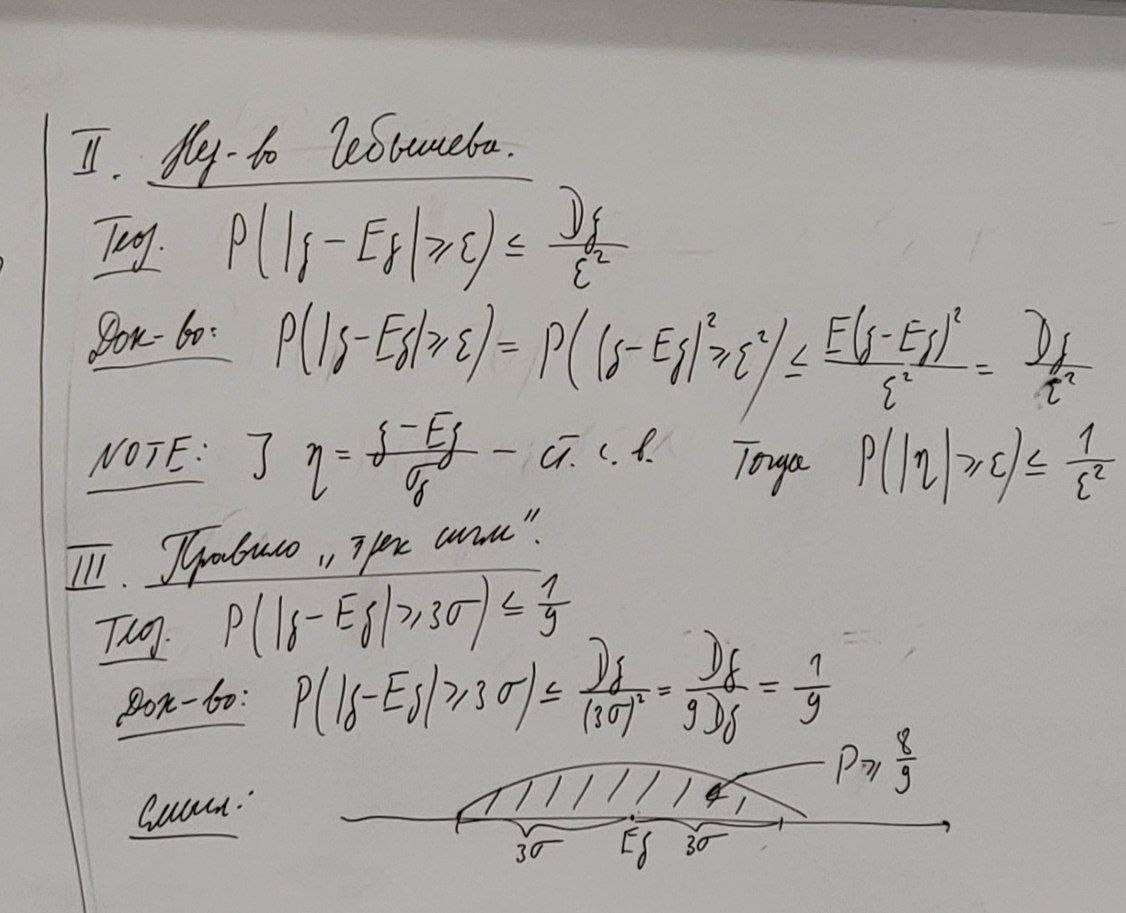 II. Нер-во Чебышева.
Теор. P(|ξ - Eξ| ≥ ε) ≤ Dξ/ε²
Док-во: P(|ξ-Eξ| ≥ ε) = P((ξ-Eξ)² ≥ ε²) ≤ E(ξ-Eξ)²/ε² = Dξ/ε²
NOTE: ] η = (ξ-Eξ)/σξ - ст. с. в. Тогда P(|η| ≥ ε) ≤ 1/ε²
III. Правило „трех сигм".
Теор. P(|ξ-Eξ| ≥ 3σ) ≤ 1/9
Док-во: P(|ξ-Eξ| ≥ 3σ) ≤ Dξ/(3σ)² = Dξ/9Dξ = 1/9
Смысл: P ≥ 8/9
3σ Eξ 3σ